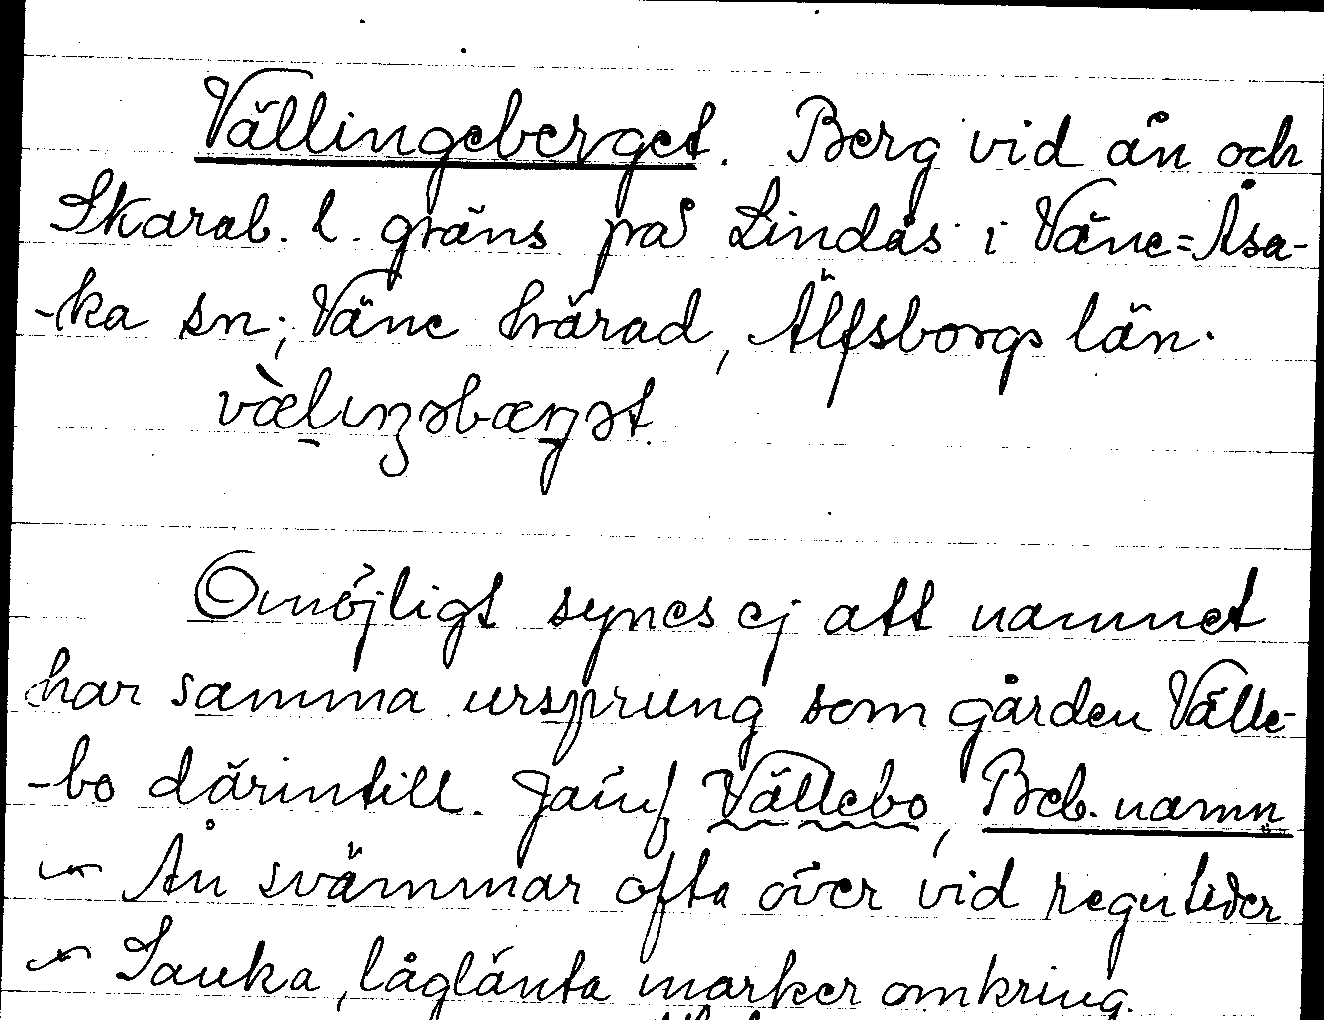 Vällingeberget. Berg vid ån och
Skarab. l. gräns på Lindås i Väne=Åsa-
-ka sn; Väne härad, Älfsborgs län.
væ̀lıŋəbærjət.
Omöjligt synes ej att namnet
har samma ursprung som gården Välle-
-bo därintill. Jämf Vällebo, Beb. namn
Ån svämmar ofta över vid regntider
Sanka, låglänta marker omkring.